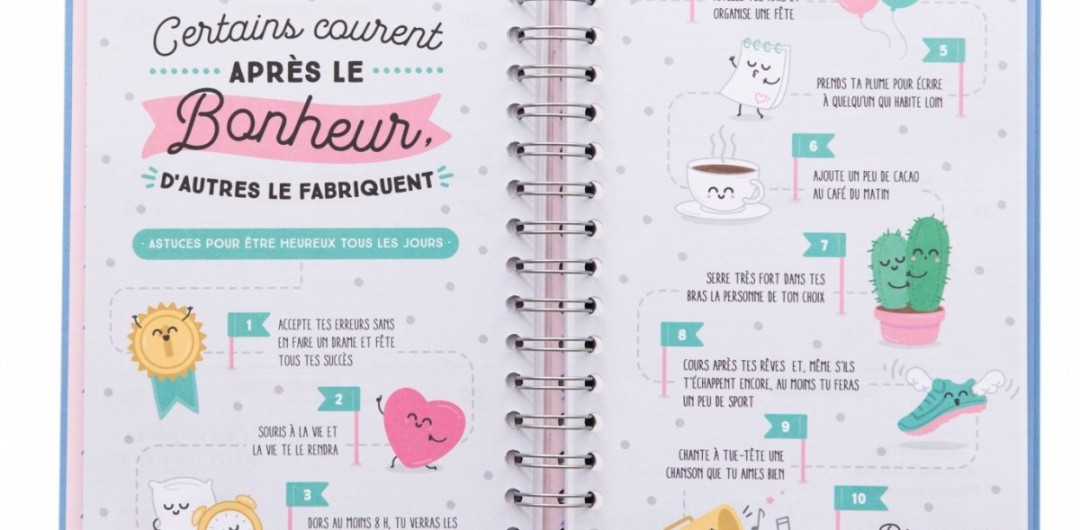 Certains courent
APRÈS LE
Bonheur,
D'AUTRES LE FABRIQUENT
· ASTUCES POUR ÊTRE HEUREUX TOUS LES JOURS ·
1
ACCEPTE TES ERREURS SANS
EN FAIRE UN DRAME ET FÊTE
TOUS TES SUCCÈS
2
SOURIS À LA VIE ET
LA VIE TE LE RENDRA
3
DORS AU MOINS 8 H, TU VERRAS LES
ORGANISE UNE FÊTE
5
PRENDS TA PLUME POUR ÉCRIRE
À QUELQU'UN QUI HABITE LOIN
6
AJOUTE UN PEU DE CACAO
AU CAFÉ DU MATIN
7
SERRE TRÈS FORT DANS TES
BRAS LA PERSONNE DE TON CHOIX
8
COURS APRÈS TES RÊVES ET, MÊME S'ILS
T'ÉCHAPPENT ENCORE, AU MOINS TU FERAS
UN PEU DE SPORT
9
CHANTE À TUE-TÊTE UNE
CHANSON QUE TU AIMES BIEN
10